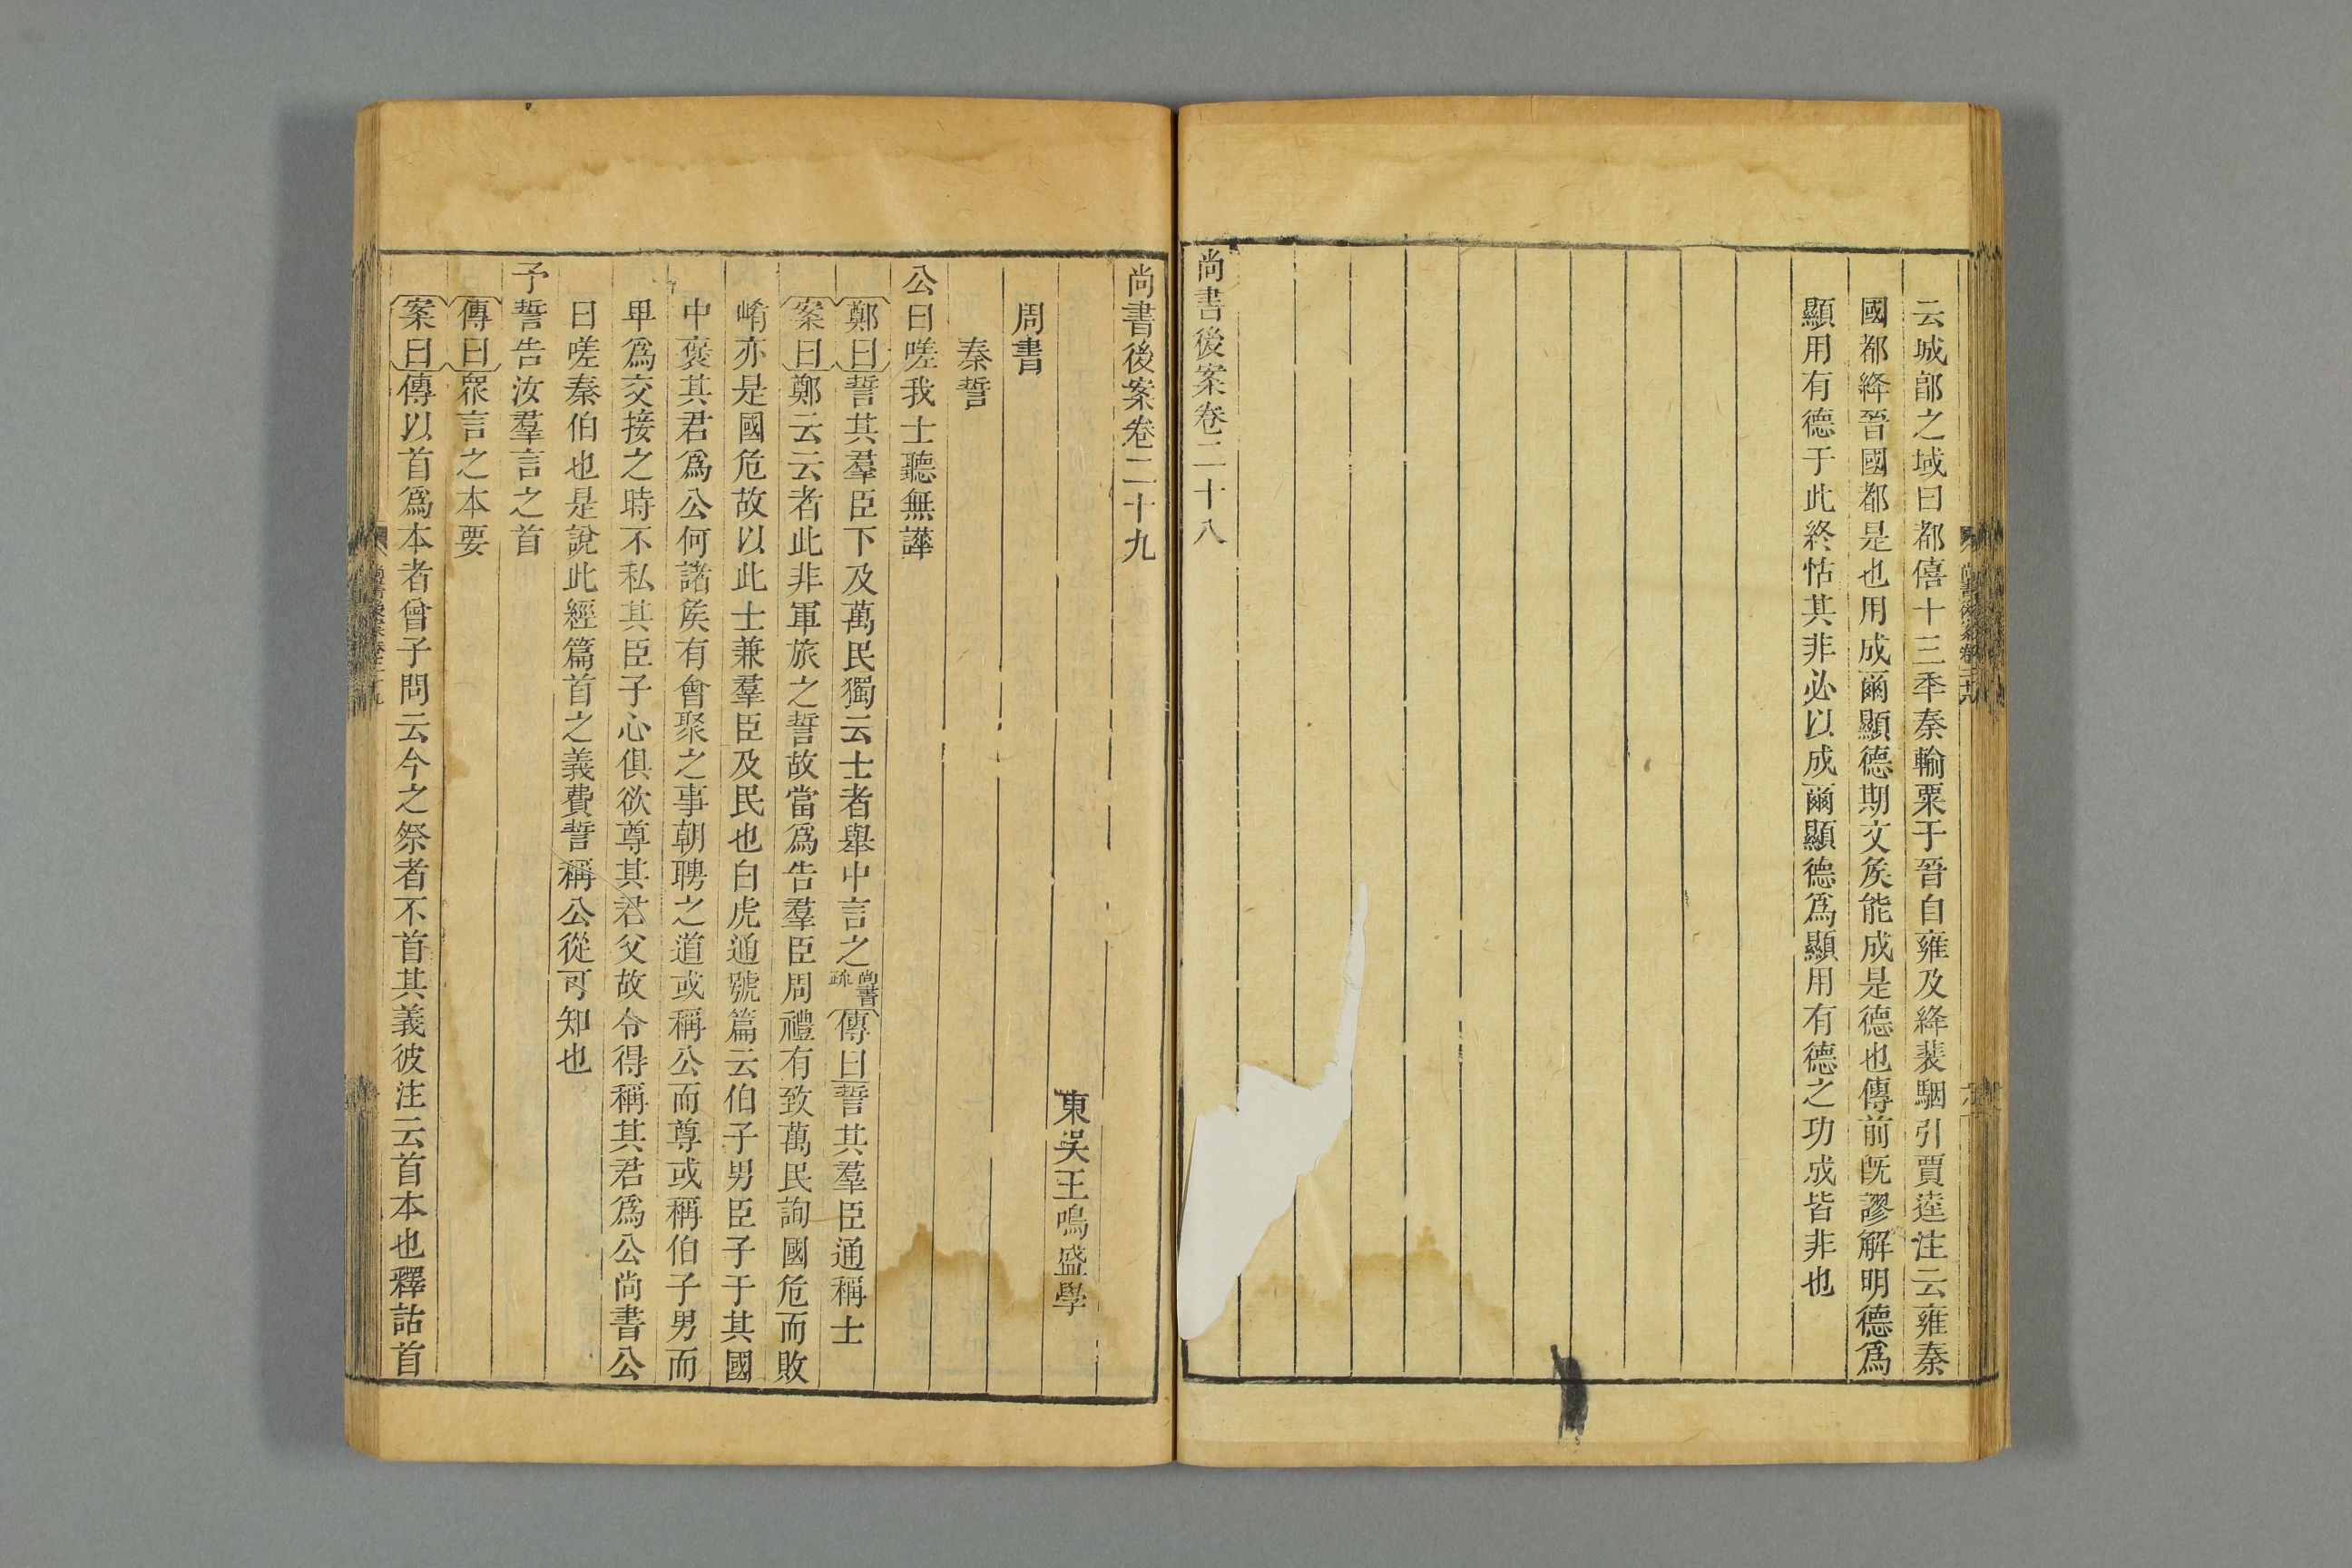 云城郃之域曰都僖十三秊秦輸粟于晉自雍及絳裴駰引賈逵注云雍秦
國都絳晉國都是也用成爾顯德期文矦能成是德也傳前旣謬解明德爲
顯用有德于此終怙其非必以成爾顯德爲顯用有德之功成皆非也
尚書後案卷二十八
尚書後案卷二十九
東吳王鳴盛學
周書
秦誓
公曰嗟我士聽無譁
鄭曰誓其羣臣下及萬民獨云士者舉中言之尚書疏傳曰誓其羣臣通稱士
案曰鄭云云者此非軍旅之誓故當爲告羣臣周禮有致萬民詢國危而敗
崤亦是國危故以此士兼羣臣及民也白虎通號篇云伯子男臣子于其國
中褒其君爲公何諸矦有會聚之事朝聘之道或稱公而尊或稱伯子男而
卑爲交接之時不私其臣子心俱欲尊其君父故令得稱其君爲公尚書公
曰嗟秦伯也是說此經篇首之義費誓稱公從可知也
予誓告汝羣言之首
傳曰眾言之本要
案曰傳以首爲本者曾子問云今之祭者不首其義彼注云首本也釋詁首